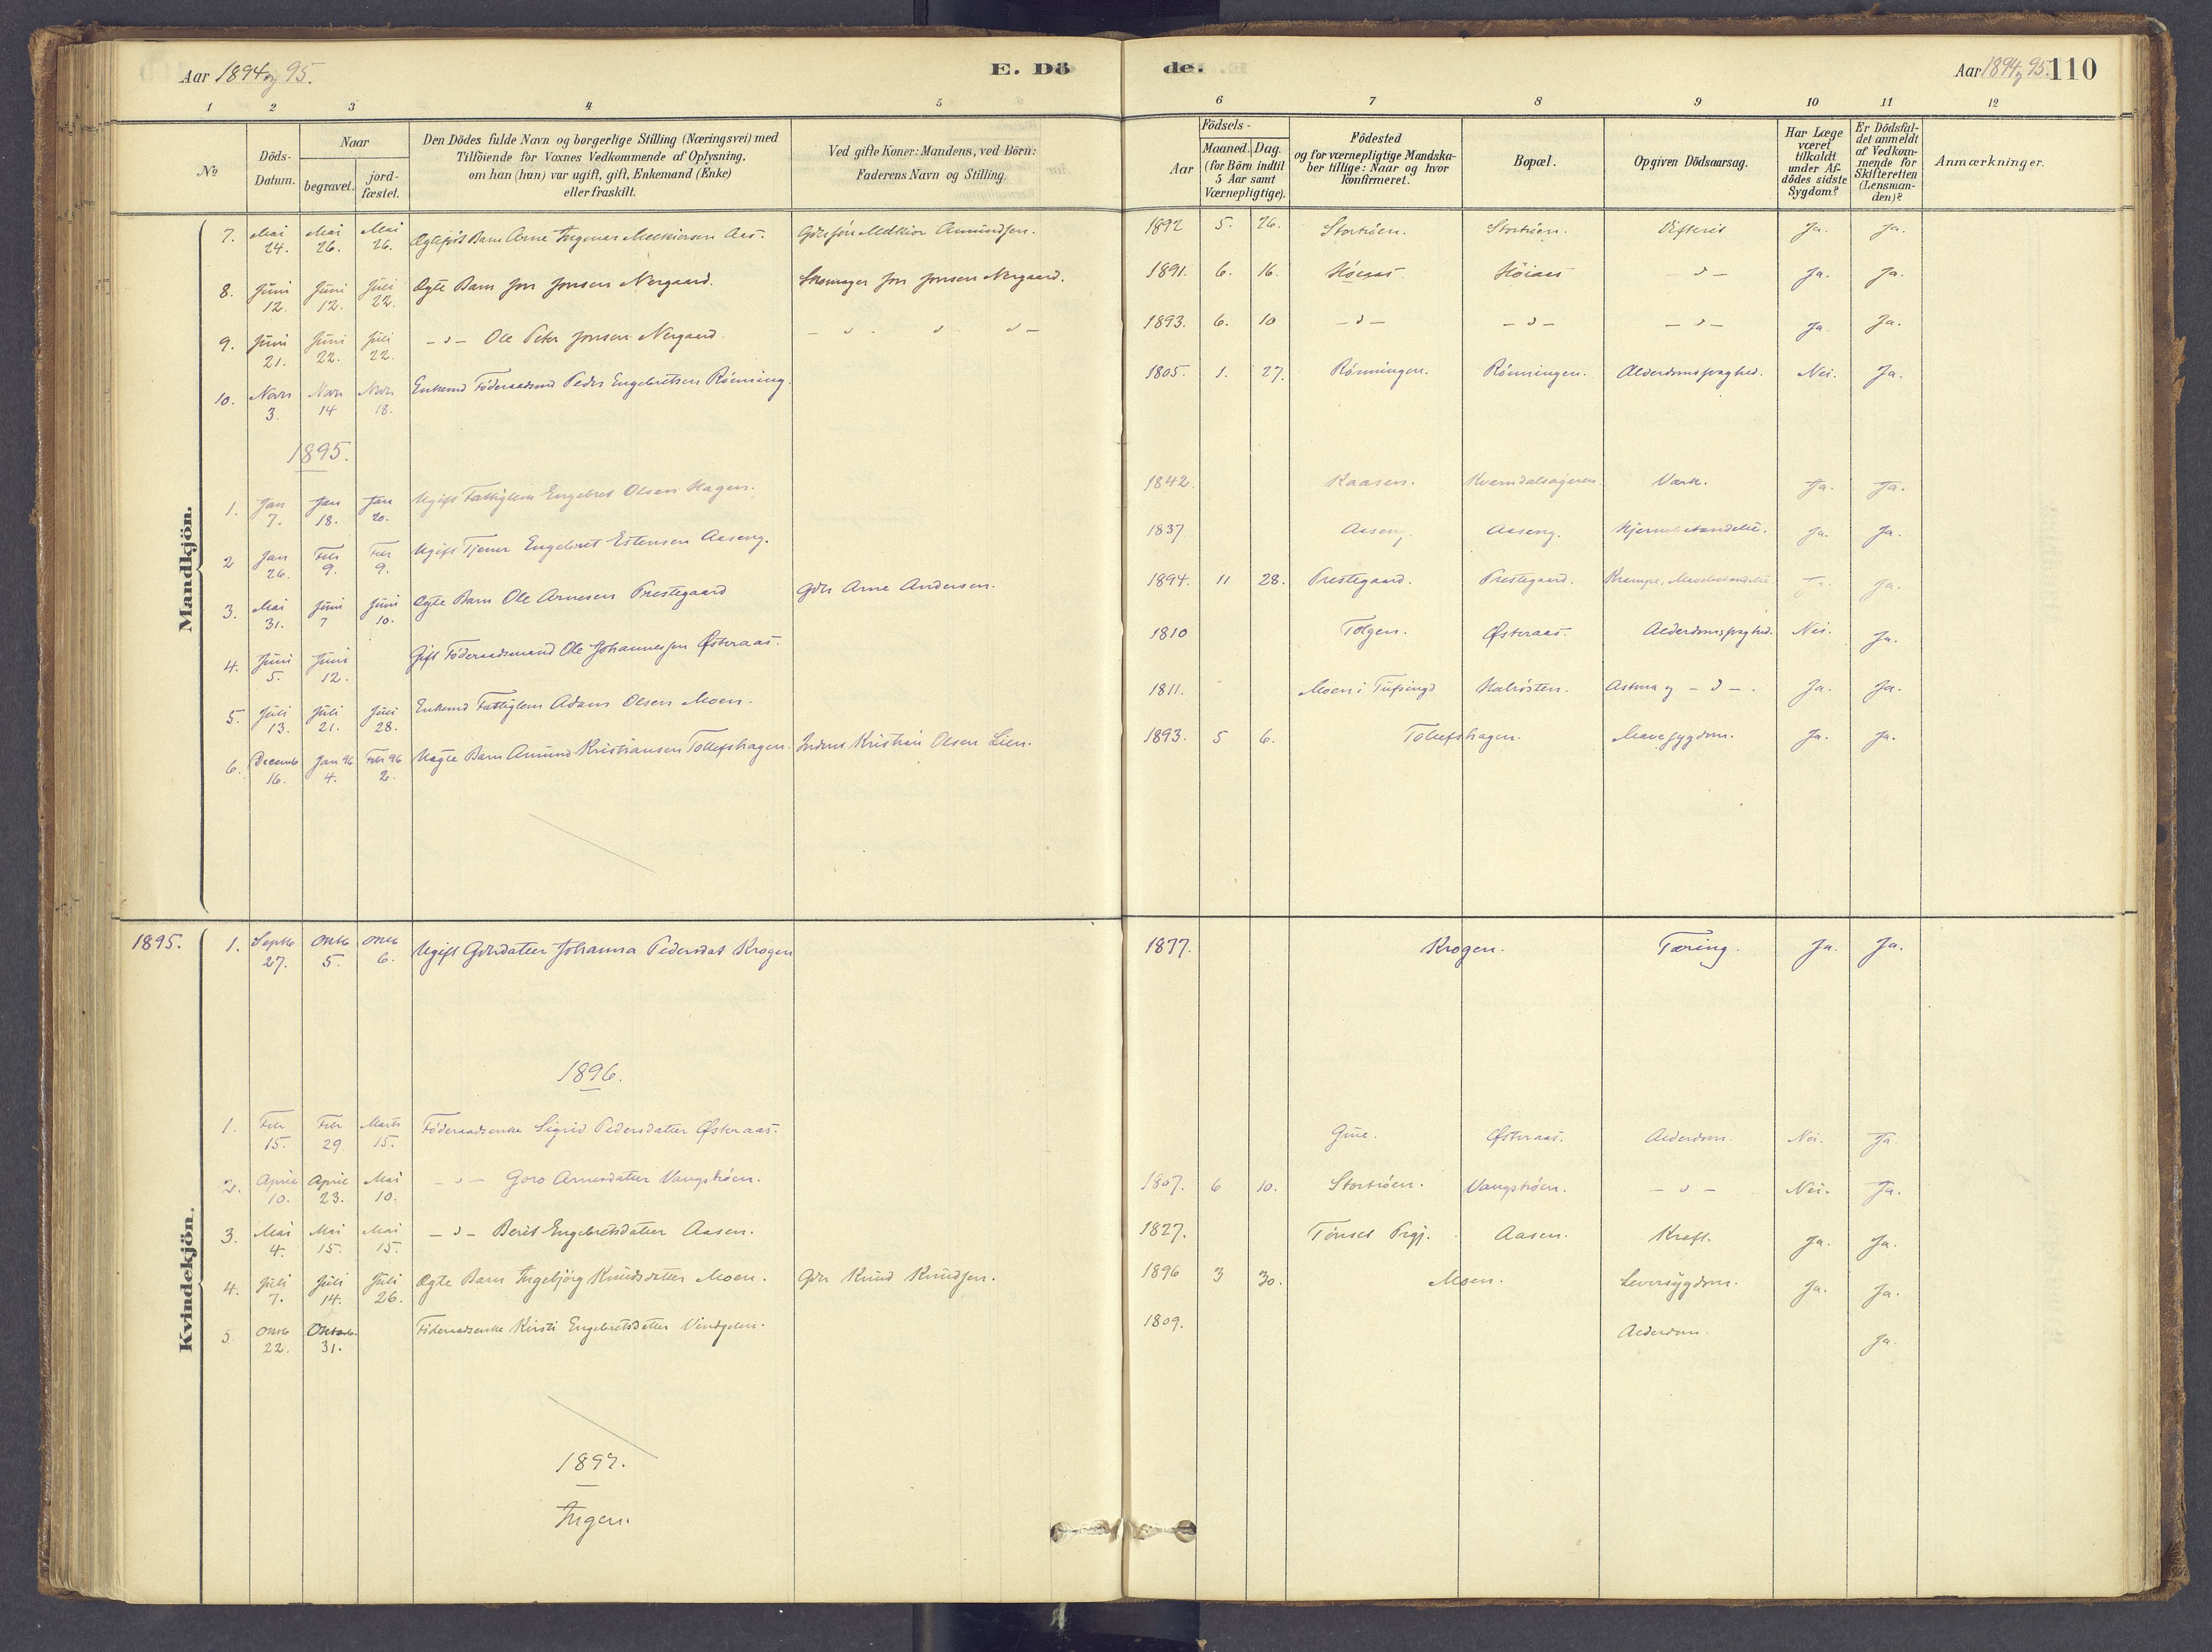 Aar 1894 og 95.
E. Dö de.
Aar 1894 og 95. 110
1 2 3 4 5 6 7 8 9 10 11 12
No
Döds-Datum.
Naar
begravet.
jordfæstet.
Den Dödes fulde Navn og borgerlige Stilling (Næringsvei) med
Tilföiende for Voxnes Vedkommende af Oplysning,
om han (hun) var ugift, gift, Enkemand (Enke)
eller fraskilt.
Ved gifte Koner: Mandens, ved Börn:
Faderens Navn og Stilling.
Födsels-
Aar
Maaned. Dag.
(for Börn indtil
5 Aar samt
Værnepligtige).
Födested
og for værnepligtige Mandska-
ber tillige: Naar og hvor
konfirmeret.
Bopæl.
Opgiven Dödsaarsag.
Har Læge
været
tilkaldt
under Af-
dödes sidste
Sygdom?
Er Dödsfal-
det anmeldt
af Vedkom-
mende for
Skifteretten
(Lensman-
den)?
Anmærkninger.
Mandkjön.
7. Mai 24. Mai 26. Mai 26. Ægtefödt Barn Arne Ingemar Melkiorsen Aas. Melkior Amundsen. 1892 5. 26. Stortröen. Stortröen. Difterit Ja. Ja.
8. Juni 12. Juni 12. Juli 22. Ægte Barn Jon Jonsen Nergaard. Skomager Jon Jonsen Nergaard. 1891. 6. 16. Höiaas Höiaas -"- Ja. Ja.
9. Juni 21. Juni 22. Juli 22. -"- Ole Peter Jonsen Nergaard. -"- -"- -"- 1893. 6. 10 -"- -"- -"- Ja. Ja.
10. Novr 3. Novr 14 Novr 18. Enkemd Föderaadsmd Peder Engebretsen Rönning. 1805. 1. 27. Rönningen. Rönningen. Alderdomssvaghed. Nei. Ja.
1895.
1. Jan 7. Jan 18. Jan 20. Ugift Fattiglem Engebret Olsen Hagen. 1842. Kaasen. Kvarndalsögeren. Værk. Ja. Ja.
2 Jan 26. Feb 9. Feb 9. Ugift Tjener Engebret Estensen Aaseng. 1837 Aaseng. Aaseng. Hjernebetændelse. Ja. Ja.
3. Mai 31. Juni 7 Juni 10. Ægte Barn Ole Arnesen Prestegaard Gdbr Arne Andersen. 1894. 11 28. Prestegaard. Prestegaard. Krampe, Mavebetændelse Ja. Ja.
4. Juni 5. Juni 12. Gift Föderaadsmand Ole Johannessen Østeraas. 1810 Tolgen. Østeraas. Alderdomssvaghed. Nei. Ja.
5. Juli 13. Juli 21. Juli 28. Enkemd Fattiglem Adam Olsen Moen. 1811. Moen i Tufsingd Halrösten. Astma og -"-. Ja. Ja.
6. Decemb 16. Jan 96 4. Febr 96 2. Uægte Barn Amund Kristiansen Tollefshagen. Inderst Kristian Olsen Lien. 1893. 5 6. Tollefshagen. Mavesygdom. Ja. Ja.
Kvindekjön.
1895. 1. Septb 27. Oktb 5. Oktb 6. Ugift Gdbrdatter Johanna Pedersdat Krogen 1877. Krogen. Tæring. Ja. Ja.
1896.
1. Febr 15. Febr 29 Marts 15. Föderaadsenke Sigrid Pedersdatter Østeraas. Østeraas. Alderdom. Nei. Ja.
2. April 10. April 23. Mai 10. -"- Goro Arnesdatter Vangströen. 1807. 6 10. Stortröen. Vangströen. -"- Nei. Ja.
3. Mai 4. Mai 15. Mai 15. -"- Berit Engebretsdatter Aasen. 1827. Tönset Prgj. Aasen. Kræft. Ja. Ja.
4. Juli 7. Juli 14. Juli 26. Ægte Barn Ingebjörg Knudsdatter Moen. Gdbr Knud Knudsen. 1896 3 30. Moen. Leversygdom. Ja. Ja.
5 Oktb 22. Oktob. 31. Föderaadsenke Kirsti Engebretsdatter Vindgelen. 1809. Alderdom. Ja.
1897.
Ingen.